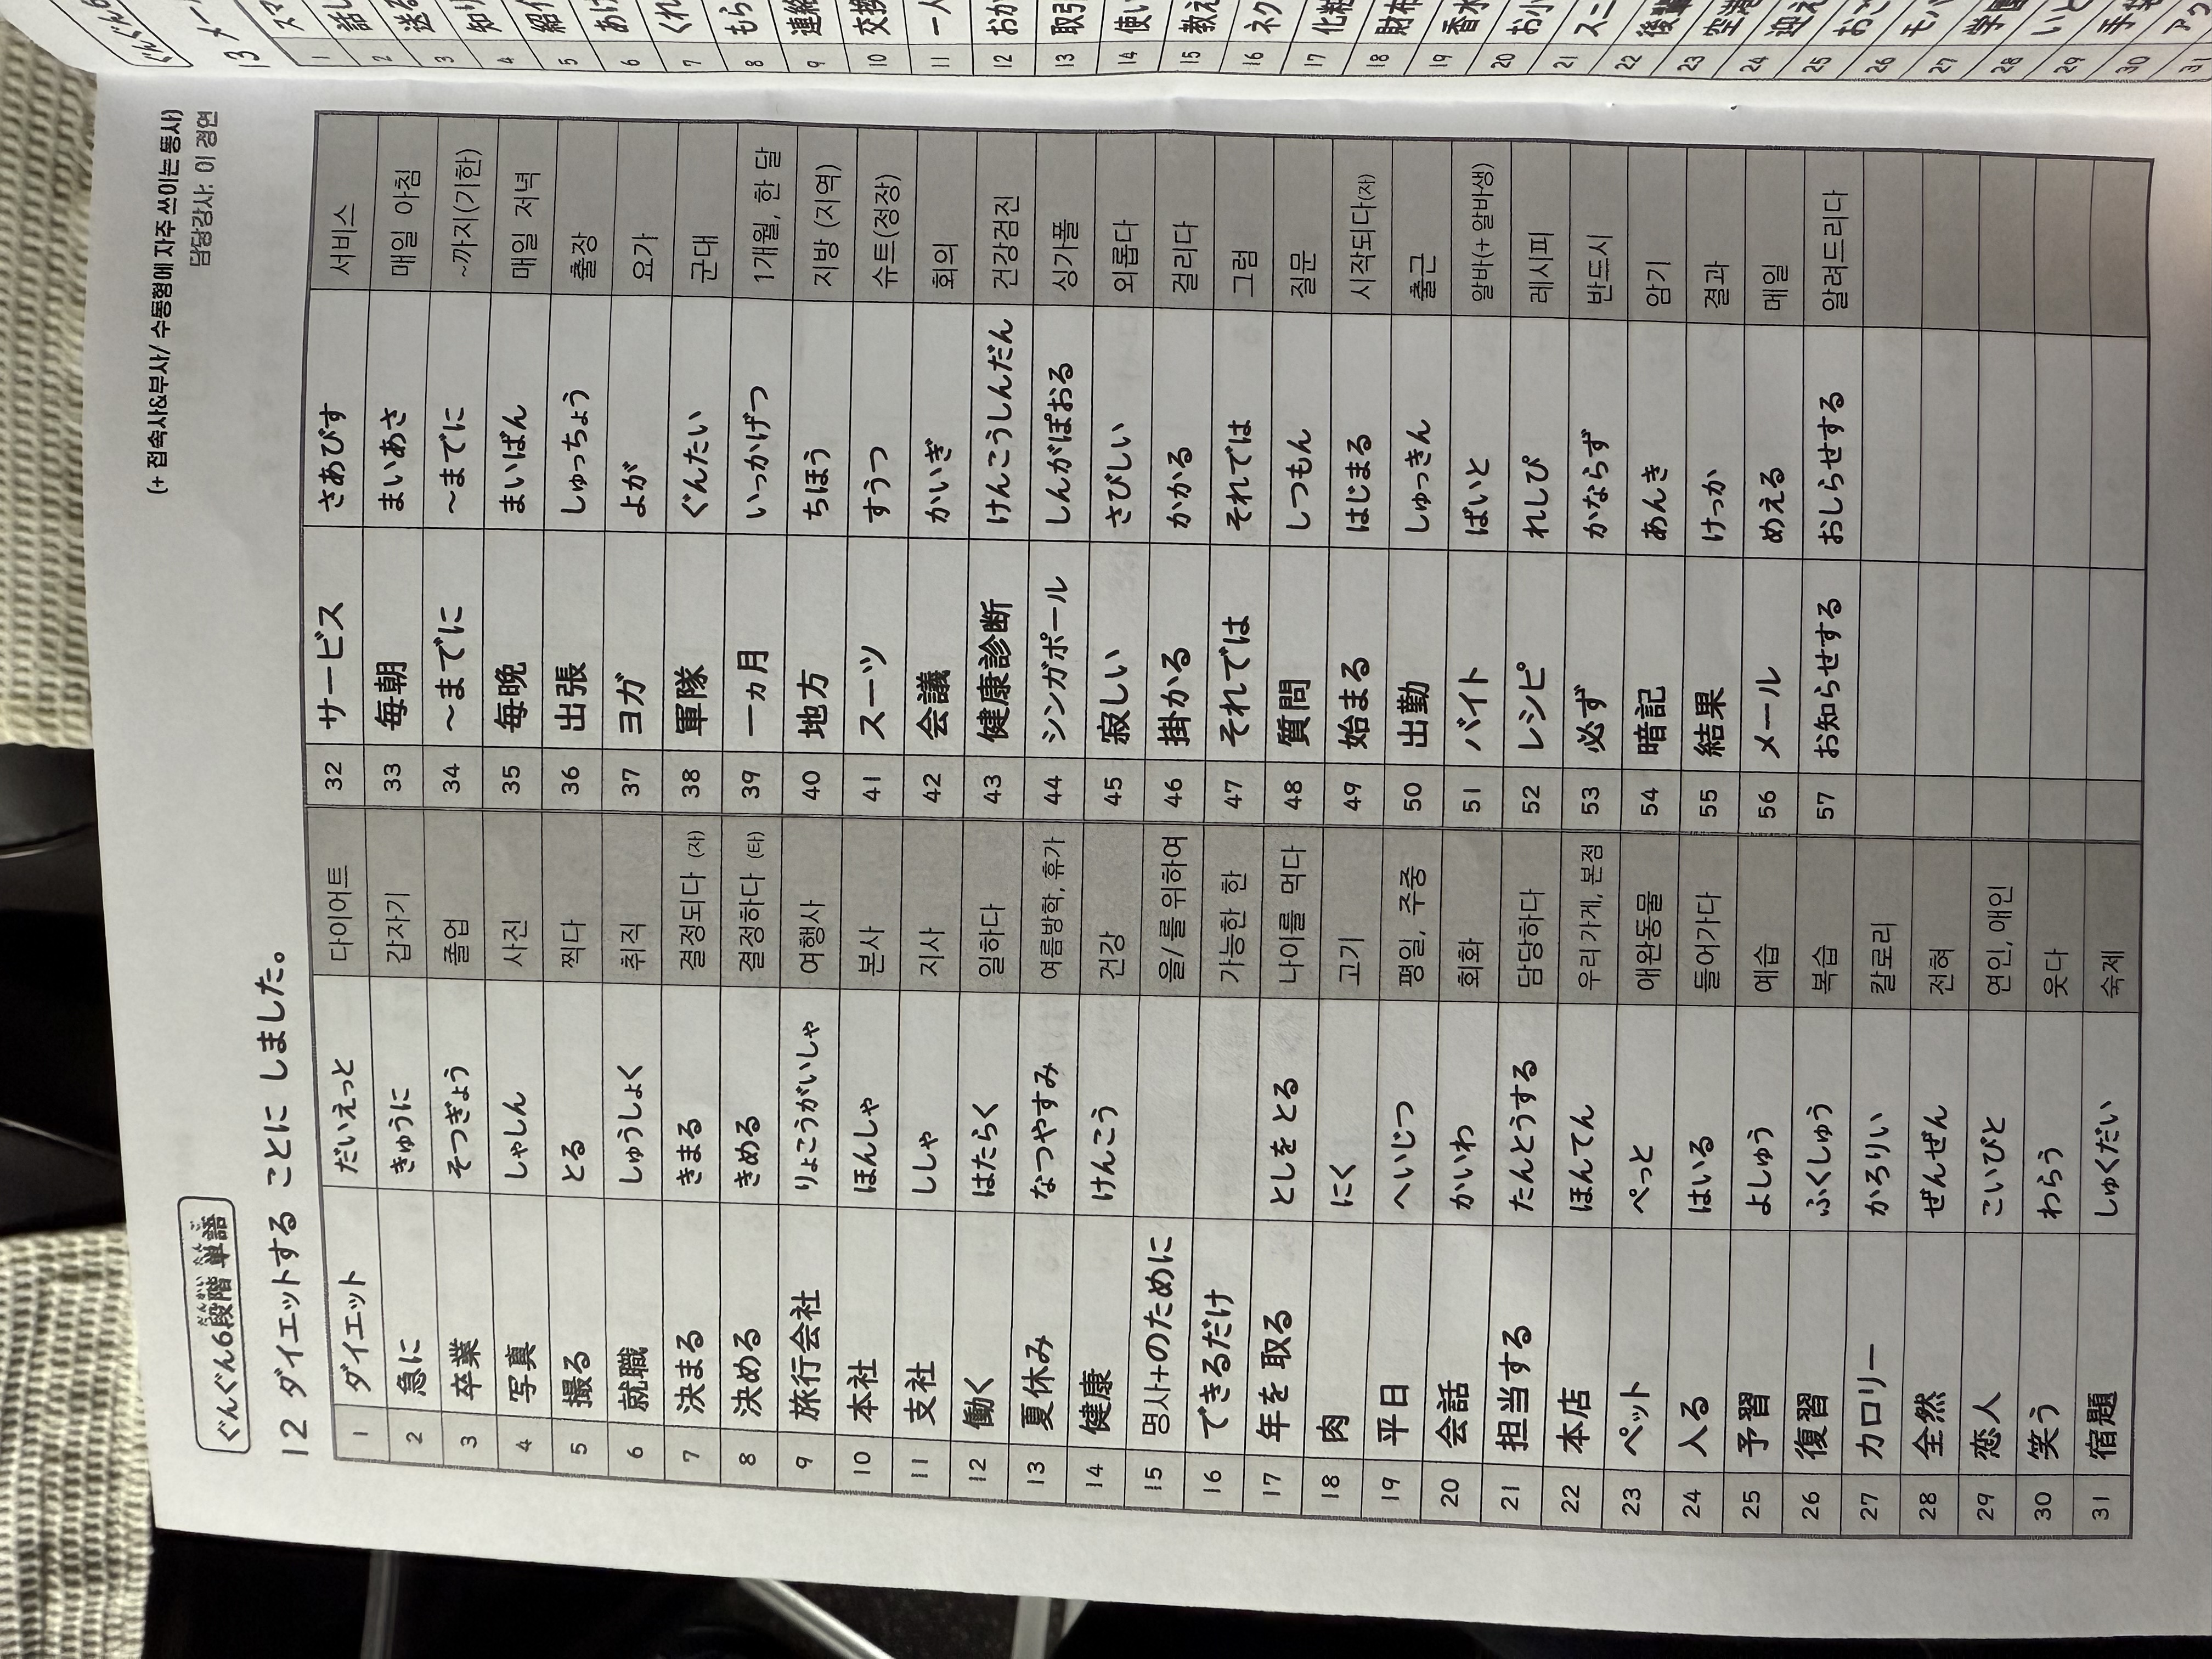 ぐんぐん6段階 単語
だんかい たんご
(+ 접속사&부사/ 수동형에 자주 쓰이는 동사)
담당강사: 이 경연
12 ダイエットする ことに しました。
1 ダイエット だいえっと 다이어트 32 サービス さあびす 서비스
2 急に きゅうに 갑자기 33 毎朝 まいあさ 매일 아침
3 卒業 そつぎょう 졸업 34 ～までに ～までに ~까지(기한)
4 写真 しゃしん 사진 35 毎晩 まいばん 매일 저녁
5 撮る とる 찍다 36 出張 しゅっちょう 출장
6 就職 しゅうしょく 취직 37 ヨガ よが 요가
7 決まる きまる 결정되다 (자) 38 軍隊 ぐんたい 군대
8 決める きめる 결정하다 (타) 39 一ヵ月 いっかげつ 1개월, 한 달
9 旅行会社 りょこうがいしゃ 여행사 40 地方 ちほう 지방 (지역)
10 本社 ほんしゃ 본사 41 スーツ すうつ 슈트(정장)
11 支社 ししゃ 지사 42 会議 かいぎ 회의
12 働く はたらく 일하다 43 健康診断 けんこうしんだん 건강검진
13 夏休み なつやすみ 여름방학, 휴가 44 シンガポール しんがぽおる 싱가폴
14 健康 けんこう 건강 45 寂しい さびしい 외롭다
15 명사+のために 을/를 위하여 46 掛かる かかる 걸리다
16 できるだけ 가능한 한 47 それでは それでは 그럼
17 年を 取る としを とる 나이를 먹다 48 質問 しつもん 질문
18 肉 にく 고기 49 始まる はじまる 시작되다(자)
19 平日 へいじつ 평일, 주중 50 出勤 しゅっきん 출근
20 会話 かいわ 회화 51 バイト ばいと 알바(+ 알바생)
21 担当する たんとうする 담당하다 52 レシピ れしぴ 레시피
22 本店 ほんてん 우리가게, 본점 53 必ず かならず 반드시
23 ペット ぺっと 애완동물 54 暗記 あんき 암기
24 入る はいる 들어가다 55 結果 けっか 결과
25 予習 よしゅう 예습 56 メール めえる 메일
26 復習 ふくしゅう 복습 57 お知らせする おしらせする 알려드리다
27 カロリー かろりい 칼로리
28 全然 ぜんぜん 전혀
29 恋人 こいびと 연인, 애인
30 笑う わらう 웃다
31 宿題 しゅくだい 숙제
ぐんぐん6
13 メー
1
2
3
4
5
6
7
8 もら
9 連絡
10 交換
11 一人
12 おか
13 取引
14 使い
15 教え
16 ネク
17 化粧
18 財布
19 香水
20
21
22 後輩
23 空港
24 迎え
25
26
27
28
29
30
31